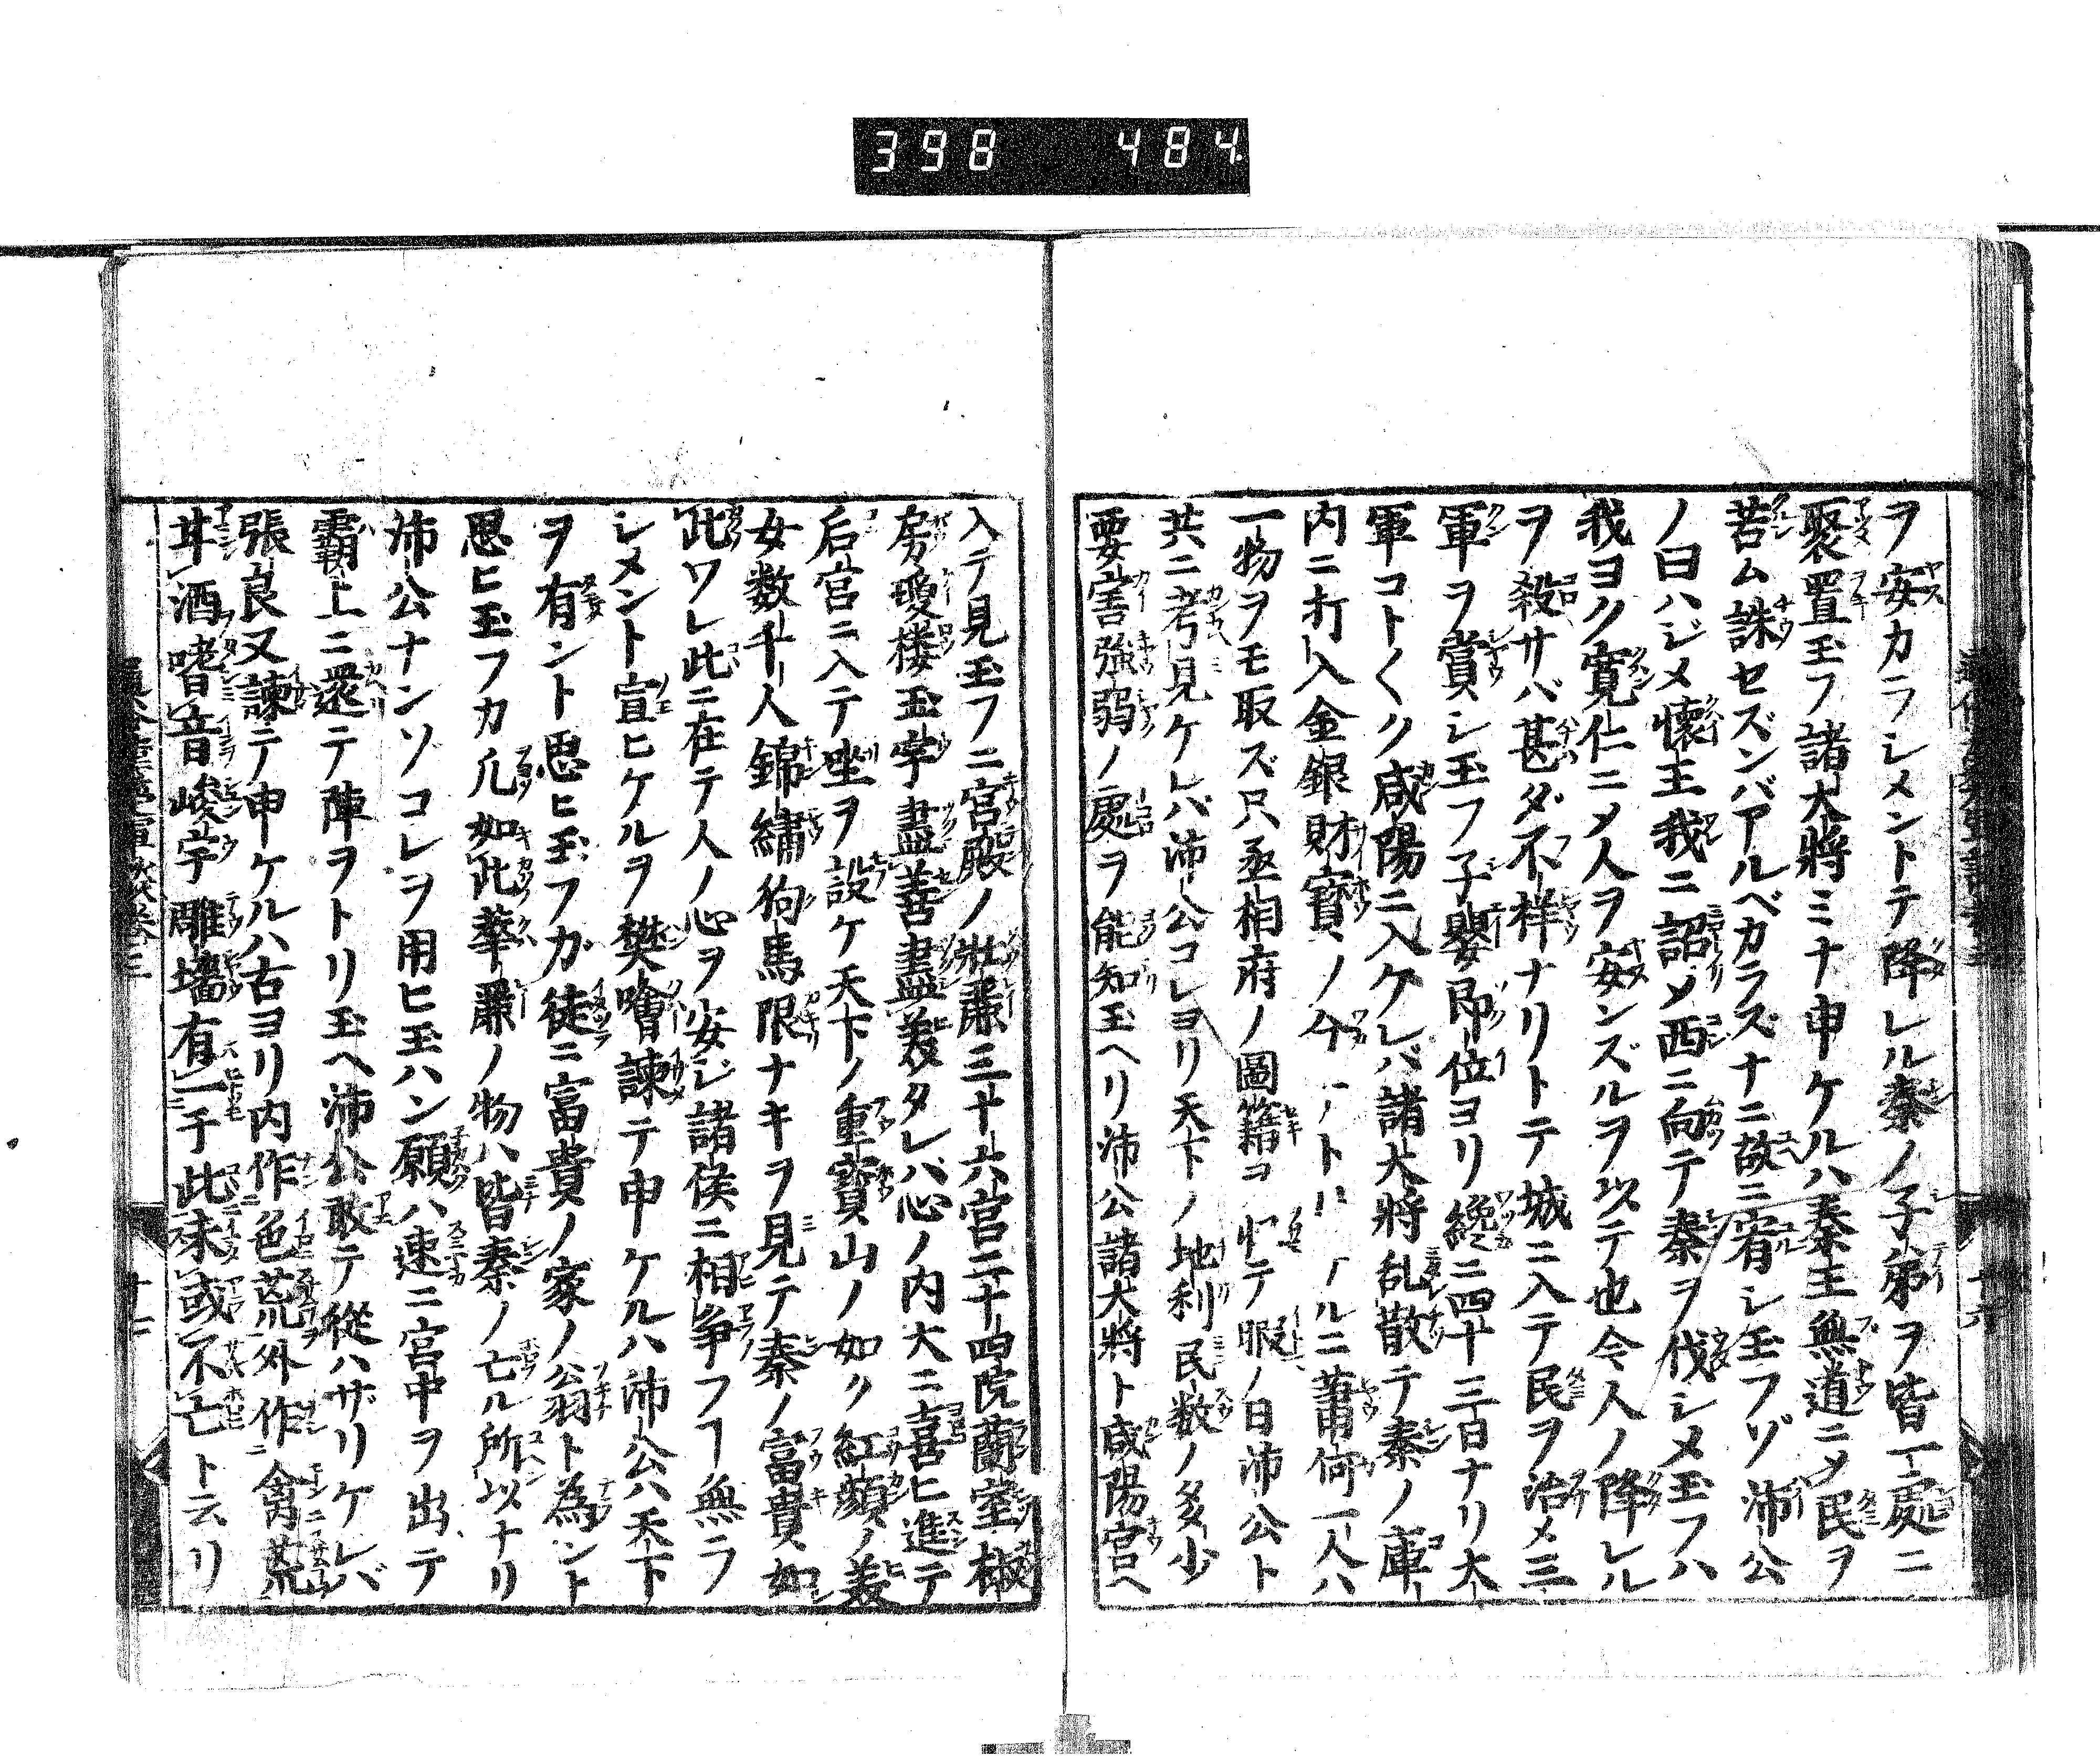 398 484
ヲ安カラシメントテ降レル秦ノ子弟ヲ皆一處ニ
聚置玉フ諸大將ミナ申ケルハ秦主無道ニメ民ヲ
苦ム誅セズンバアルベカラズナニ故ニ宥シ玉フゾ沛公
ノ曰ハジメ懷王我ニ詔メ西ニ向テ秦ヲ伐シメ玉フハ
我ヨク寛仁ニメ人ヲ安ンズルヲ以テ也今人ノ降レル
ヲ殺サバ甚ダ不祥ナリトテ城ニ入テ民ヲ治メ三
軍ヲ賞シ玉フ子嬰即位ヨリ纔ニ四十三日ナリ大
軍コト〱ク咸陽ニ入ケレバ諸大將乱散テ秦ノ庫
内ニ打入金銀財寳ノ ルニ蕭何一人ハ
一物ヲモ取ズ只丞相府ノ圖籍ヲ テ暇ノ日沛公ト
共ニ考見ケレバ沛公コレヨリ天下ノ地利民数ノ多少
要害強弱ノ處ヲ能知玉ヘリ沛公諸大將ト咸陽宮ヘ
入テ見玉フニ宮殿ノ壯嚴三十六宮二十四院蘭室椒
房瓊楼玉宇盡善盡美タレバ心ノ内大ニ喜ヒ進テ
后宮ニ入テ坐ヲ設ケ天下ノ重寳山ノ如ク紅顔ノ美
女数千人錦繡狗馬限ナキヲ見テ秦ノ富貴如
此ワレ此ニ在テ人ノ心ヲ安ジ諸侯ニ相争フヿ無ラ
シメント宣ヒケルヲ樊噲諫テ申ケルハ沛公ハ天下
ヲ有ント思ヒ玉フカ徒ニ富貴ノ家ノ翁ト為ント
思ヒ玉フカ凡如此華麗ノ物ハ皆秦ノ亡ル所以ナリ
沛公ナンゾコレヲ用ヒ玉ハン願ハ速ニ宮中ヲ出テ
霸上ニ還テ陣ヲトリ玉ヘ沛公敢テ從ハザリケレバ
張良又諫テ申ケルハ古ヨリ内作色荒外作禽荒
甘酒嗜音峻宇雕墻有一于此未或不亡ト云リ